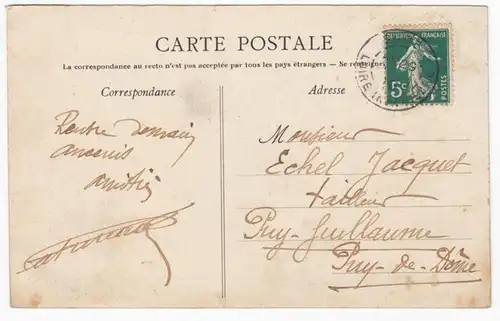 CARTE POSTALE
La correspondance au recto n'est pas acceptée par tous les pays étrangers — Se renseigner
Correspondance
Adresse
REPUBLIQUE FRANÇAISE
5c
POSTES
LOIRE
Rentre demain
Ancenis
amitiés
Monsieur
Echel Jacquet
tailleur
Puy-Guillaume
Puy-de-Dôme